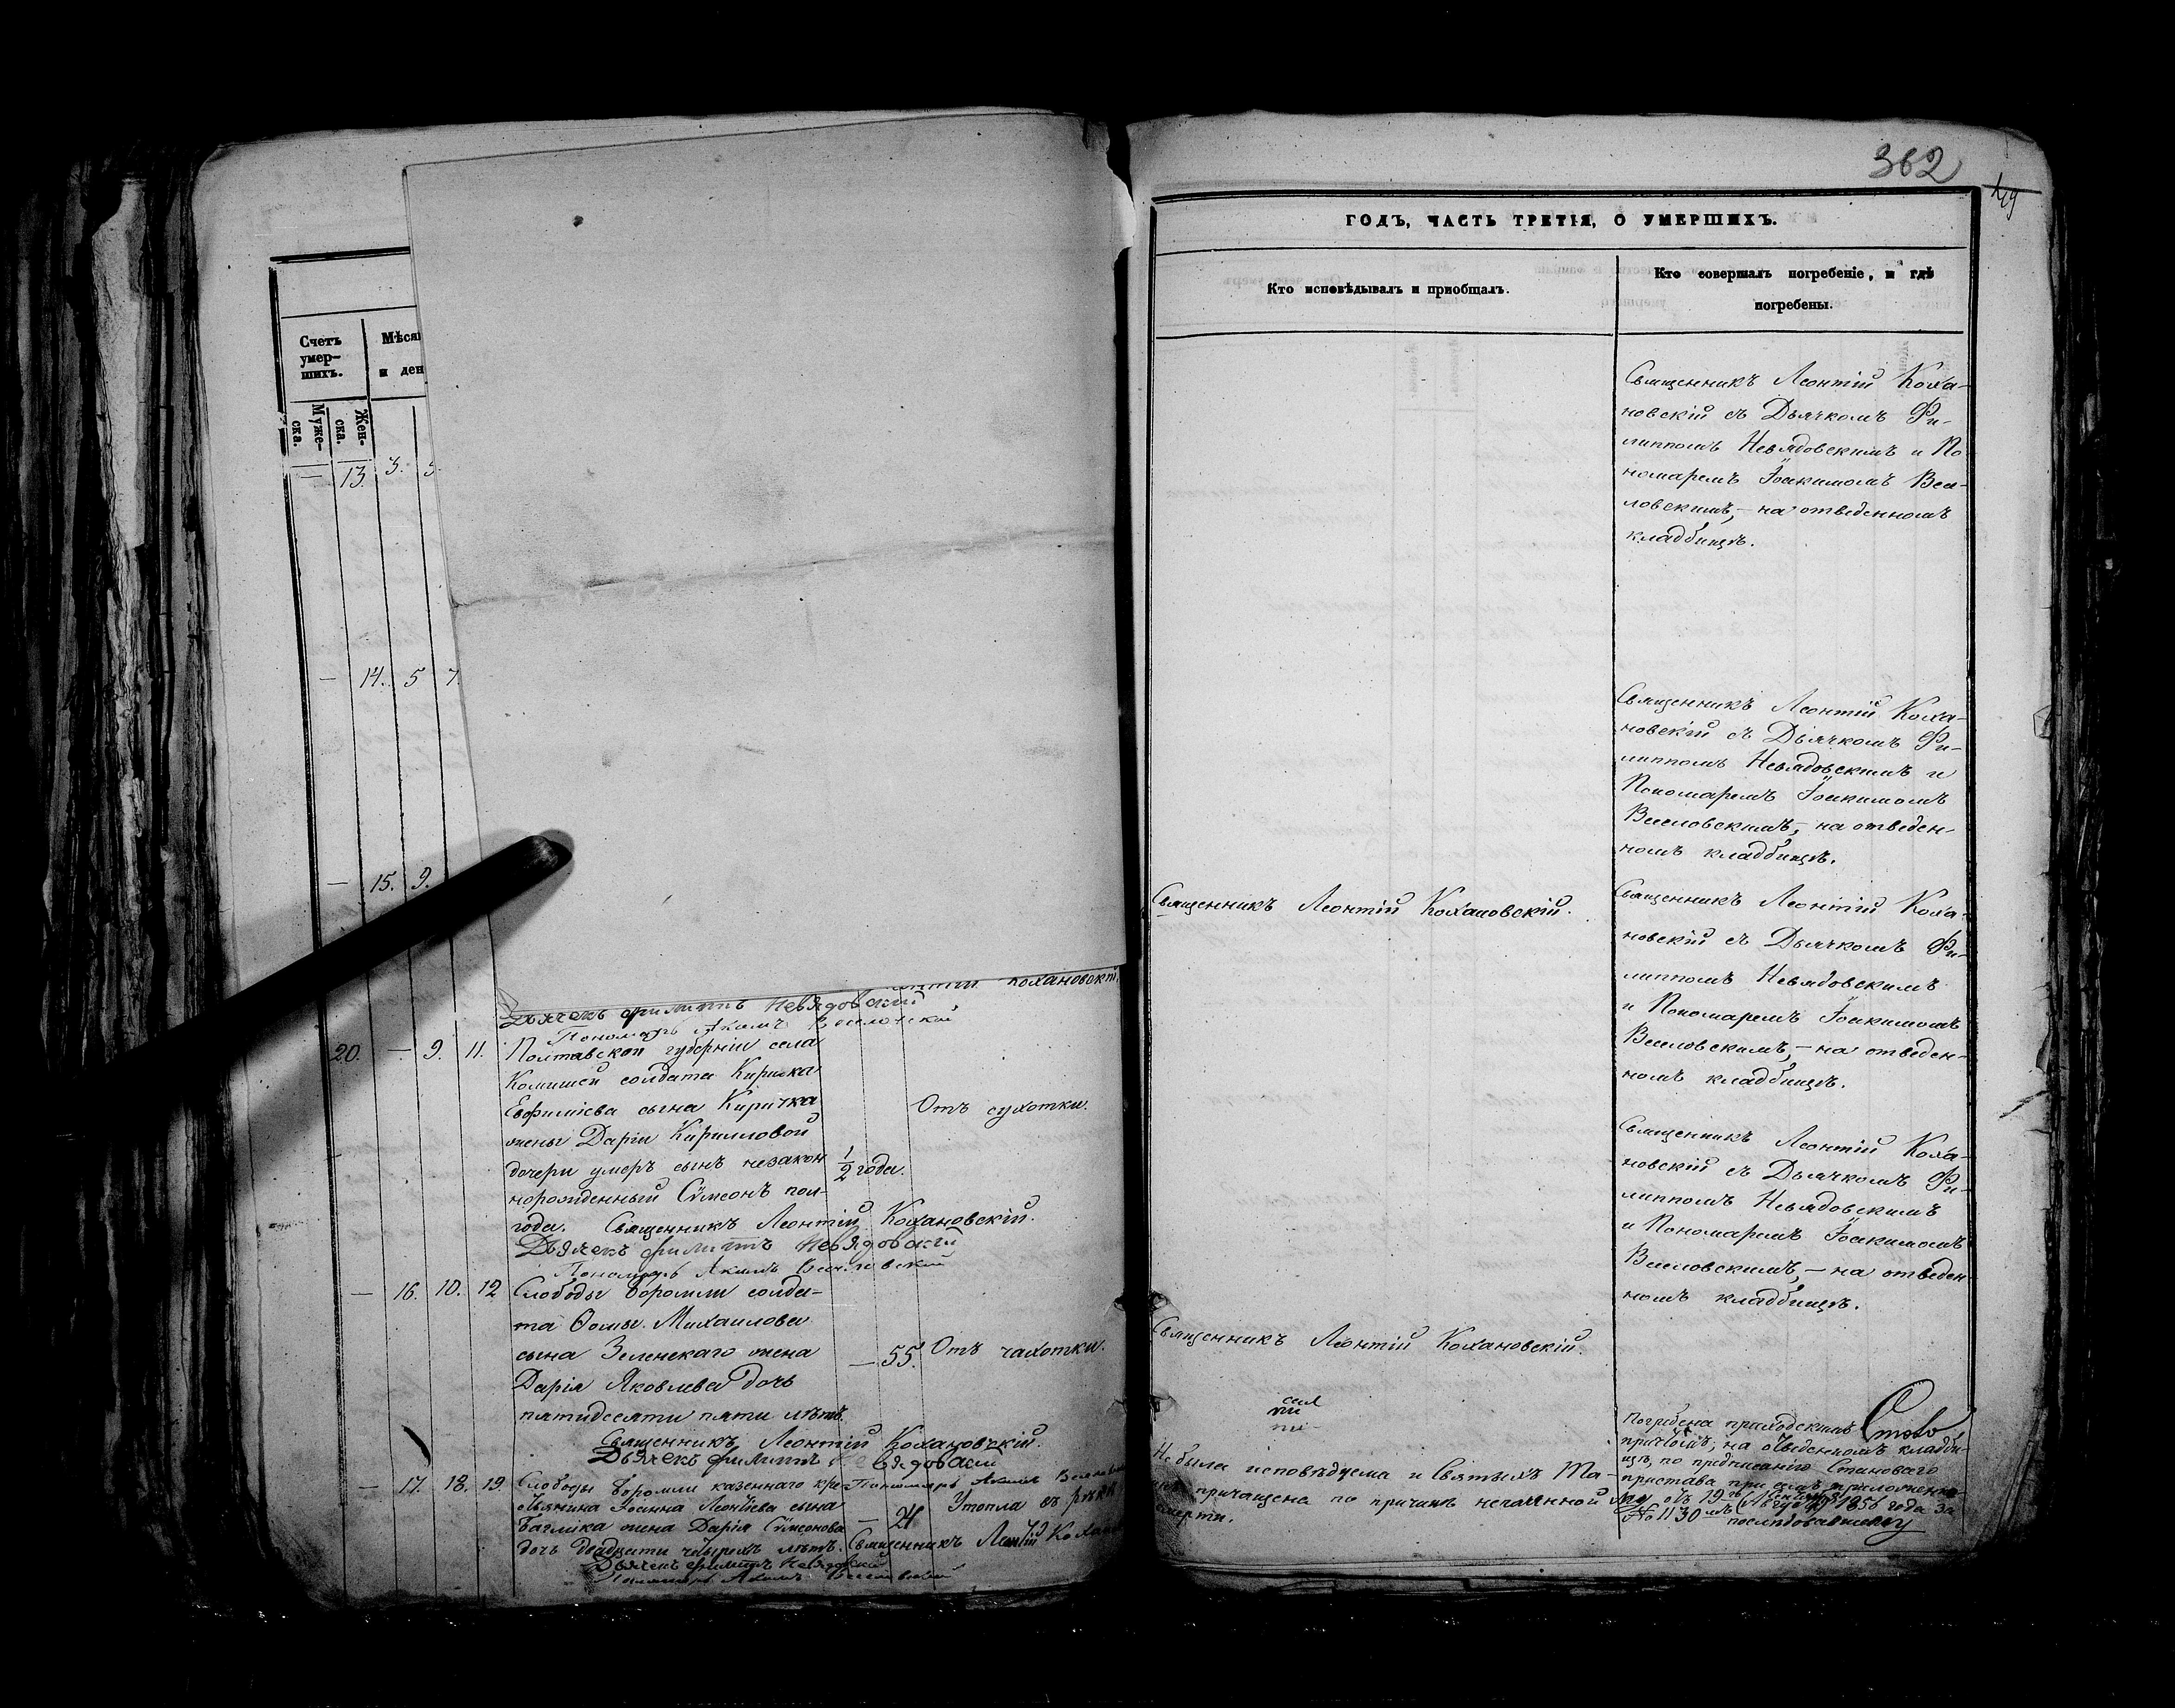 Счетъ
умер-
шихъ.
Муже-
ска.
Жен-
ска.
Мѣся
и ден
— 13. 3. 5.
— 14. 5 7.
— 15. 9.
Кохановскій.
Дьячекъ Филиппъ Невядовскій
Пономарь Акимъ Веселовскій
20. — 9. 11. Полтавской губерніи села
Комишей солдата Кирика
Евфиміева сына Киричка
жены Даріи Кирилловой
дочери умеръ сынъ незакон
норожденный Сѵмеонъ пол-
года.
1/2 года.
Отъ сухотки.
Священникъ Леонтій Кохановскій.
Дьячекъ Филиппъ Невядовскій
Пономарь Акимъ Веселовскій
— 16. 10. 12 Слободы Боромли солда-
та Ѳомы Михаилова
сына Зеленскаго жена
Дарія Яковлева дочь
пятидесяти пяти лѣтъ.
— 55. Отъ чахотки.
Священникъ Леонтій Кохановскій.
Дьячекъ Филиппъ Невядовскій
Пономарь Акимъ
— 17. 18. 19. Слободы Боромли казеннаго кре-
стьянина Іоанна Леонтіева сына
жена Дарія Сѵмеонова
дочь двадцати четырехъ лѣтъ.
— 24 Утопла въ рѣкѣ
Священникъ Леонтій Коха
Дьячекъ Филиппъ Невядовскій
Пономарь Акимъ Веселовскій
362
ГОДЪ, ЧАСТЬ ТРЕТІЯ, О УМЕРШИХЪ.
Кто исповѣдывалъ и пріобщалъ.
Кто совершалъ погребеніе, и гдѣ
погребены.
Священникъ Леонтій Коха-
новскій съ Дьячкомъ Фи-
липпомъ Невядовскимъ и По
номаремъ Іоакимомъ Весе-
ловскимъ, — на отведенномъ
кладбищѣ.
Священникъ Леонтій Коха-
новскій съ Дьячкомъ Фи-
липпомъ Невядовскимъ и
Пономаремъ Іоакимомъ
Веселовскимъ, — на отведен-
номъ кладбищѣ.
Священникъ Леонтій Кохановскій.
Священникъ Леонтій Коха-
новскій съ Дьячкомъ Фи-
липпомъ Невядовскимъ
и Пономаремъ Іоакимомъ
Веселовскимъ, — на отведен-
номъ кладбищѣ.
Священникъ Леонтій Коха-
новскій съ Дьячкомъ Фи-
липпомъ Невядовскимъ
и Пономаремъ Іоакимомъ
Веселовскимъ, — на отведен-
номъ кладбищѣ.
Священникъ Леонтій Кохановскій.
Не была исповѣдуема и Святыхъ Та-
инъ причащена по причинѣ нечаянной
смерти.
Погребена приходскимъ
причтомъ, на отведенномъ кладби-
щѣ, по предписанію Становаго
пристава при семъ приложенно-
му отъ 19 1856 года за
№ 1130 послѣдовавшему